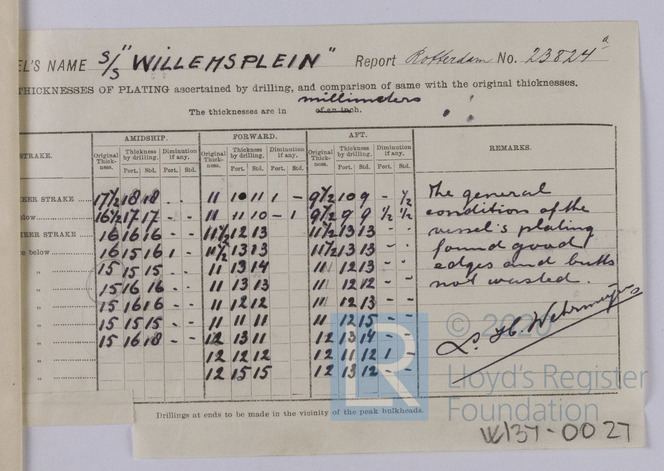 EL'S NAME S/S "WILLEMSPLEIN" Report Rotterdam No. 23824a
THICKNESSES OF PLATING ascertained by drilling, and comparison of same with the original thicknesses.
The thicknesses are in millimeters of an inch.
STRAKE. AMIDSHIP. FORWARD. AFT. REMARKS.
Original Thick-ness. Thickness by drilling. Diminution if any. Original Thick-ness. Thickness by drilling. Diminution if any. Original Thick-ness. Thickness by drilling. Diminution if any.
Port. Std. Port. Std. Port. Std. Port. Std. Port. Std. Port. Std.
STRAKE 17½ 18 18 - - 11 10 11 1 - 9½ 10 9 - ½
below 16½ 17 17 - - 11 11 10 - 1 9½ 9 9 ½ ½
STRAKE 16 16 16 - - 11½ 12 13 11½ 13 13 - -
below 16 15 16 1 - 11½ 13 13 11½ 13 13 - -
" 15 15 15 - - 11 13 14 11 12 13 - -
" 15 16 16 - - 11 13 13 11 12 12 - -
" 15 16 16 - - 11 12 12 11 12 13 - -
" 15 15 15 - - 11 11 11 11 12 15 - -
" 15 16 18 - - 12 13 11 12 13 14 - -
" 12 12 12 12 11 12 1 -
" 12 15 15 12 13 12 - -
The general
condition of the
vessel's plating
found good
edges and butts
not wasted.
Drillings at ends to be made in the vicinity of the peak bulkheads.
© 2020
LR
Lloyd's Register
Foundation
W137-0027